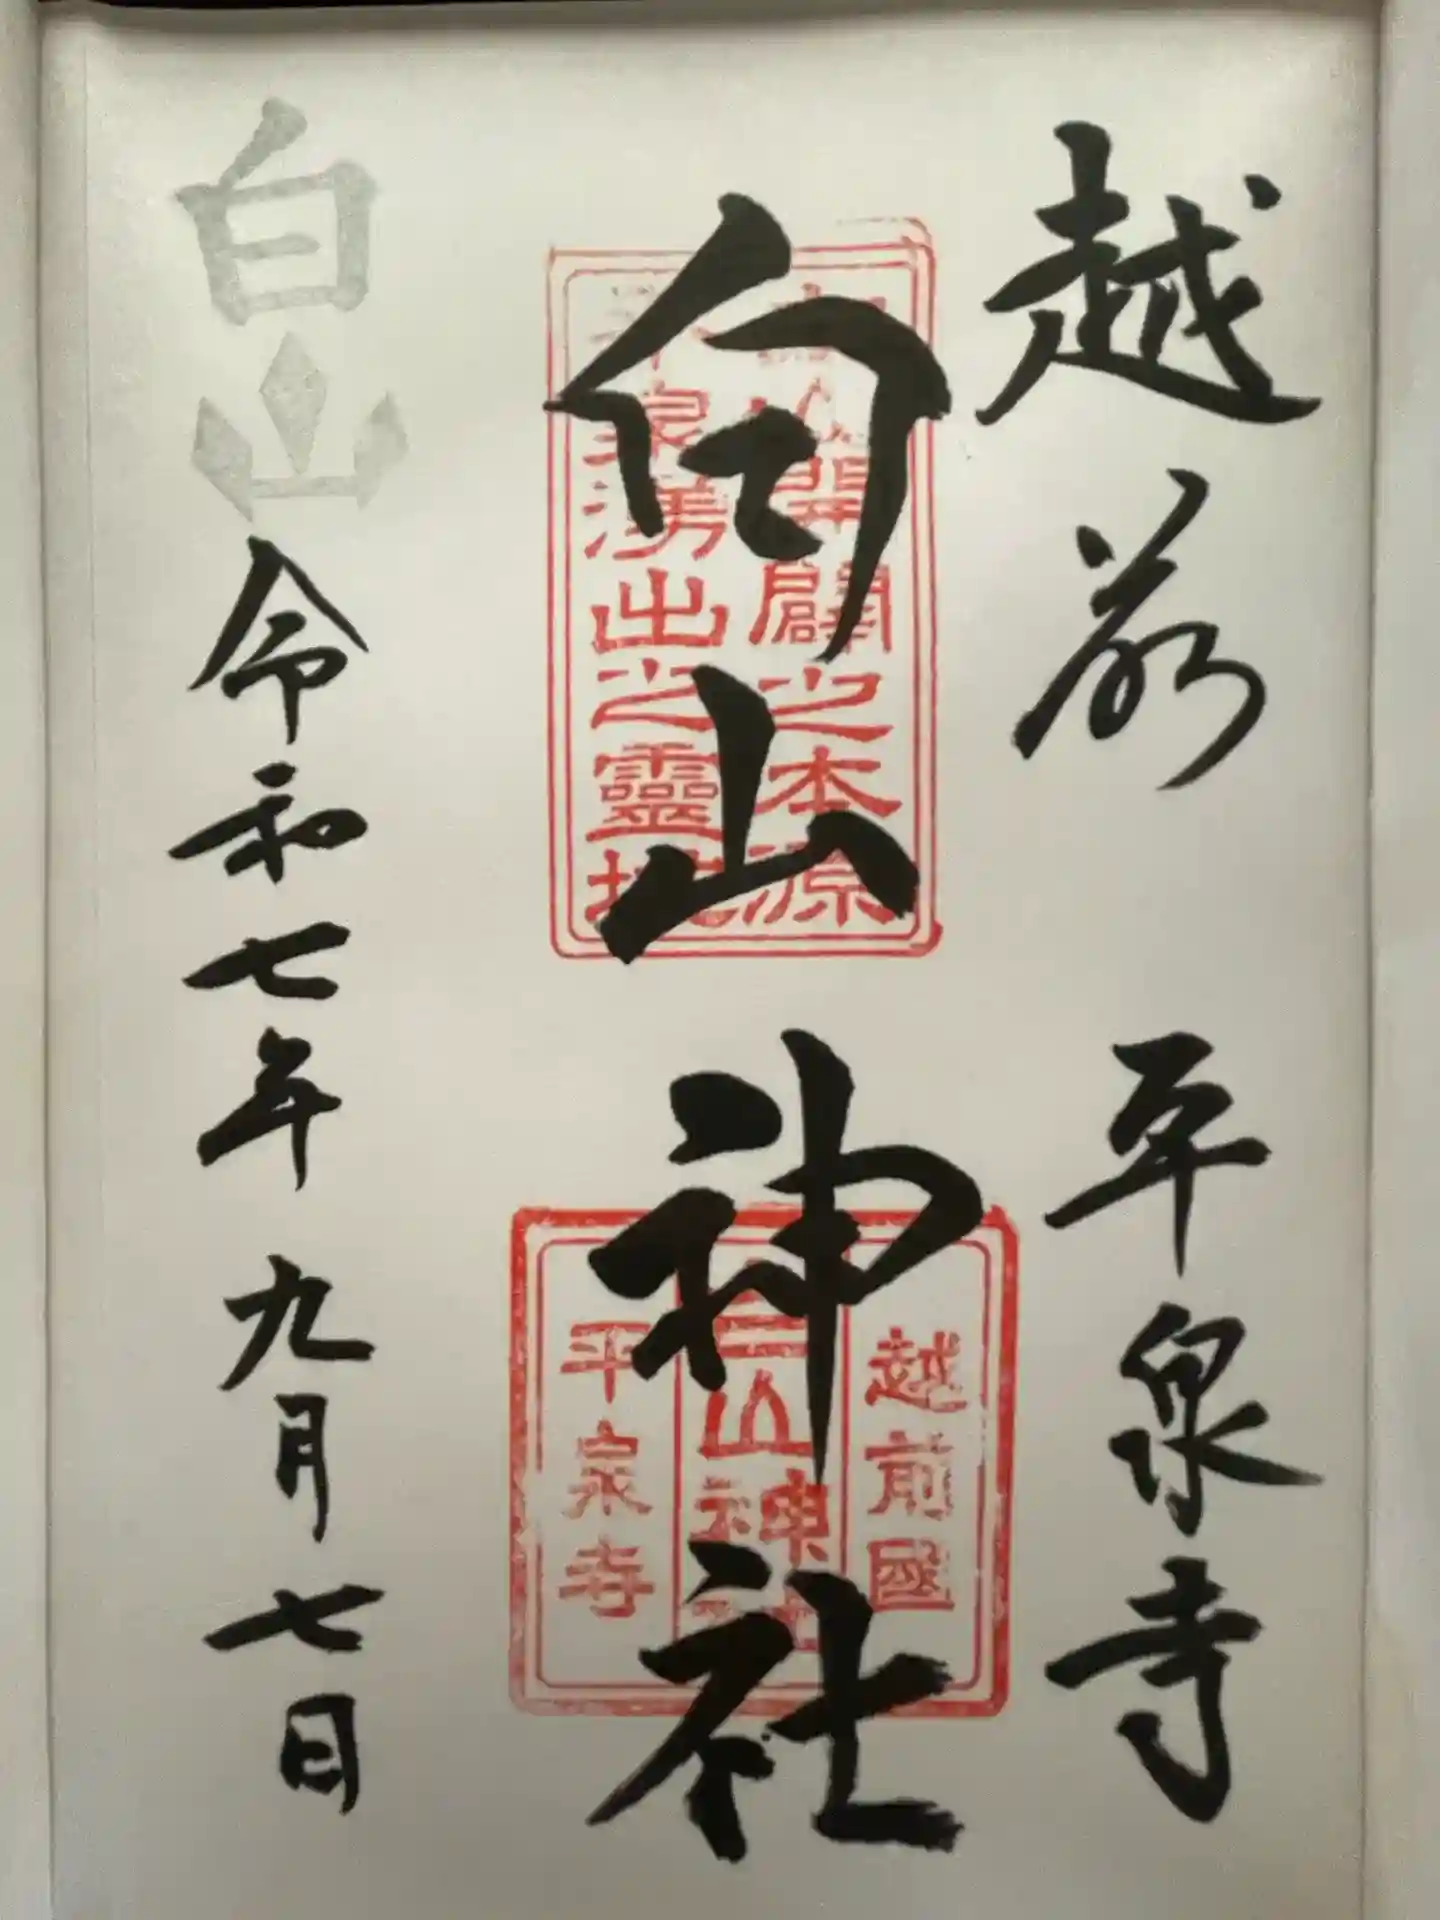 越前 平泉寺
白山神社
山開闢之本源
平泉湧出之靈地
越前國
白山神社
平泉寺
白山
令和七年九月七日